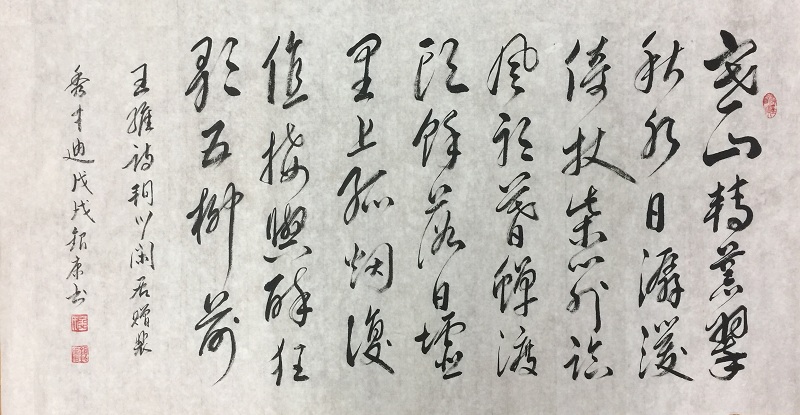 寒山轉蒼翠
秋水日潺湲
倚杖柴门外临
风听暮蟬渡
头餘落日墟
里上孤烟復
值接輿醉狂
歌五柳前
王维诗辋川闲居赠裴
秀才迪戊戌康书